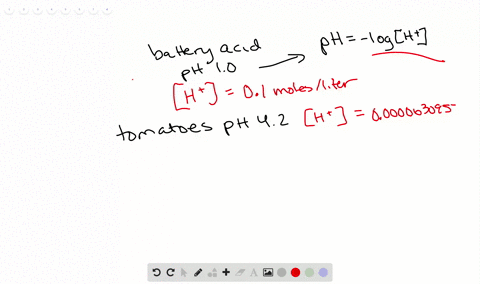 battery acid
pH 1.0
pH = -log[H+]
[H+] = 0.1 moles/liter
tomatoes pH 4.2 [H+] = 0.000063095